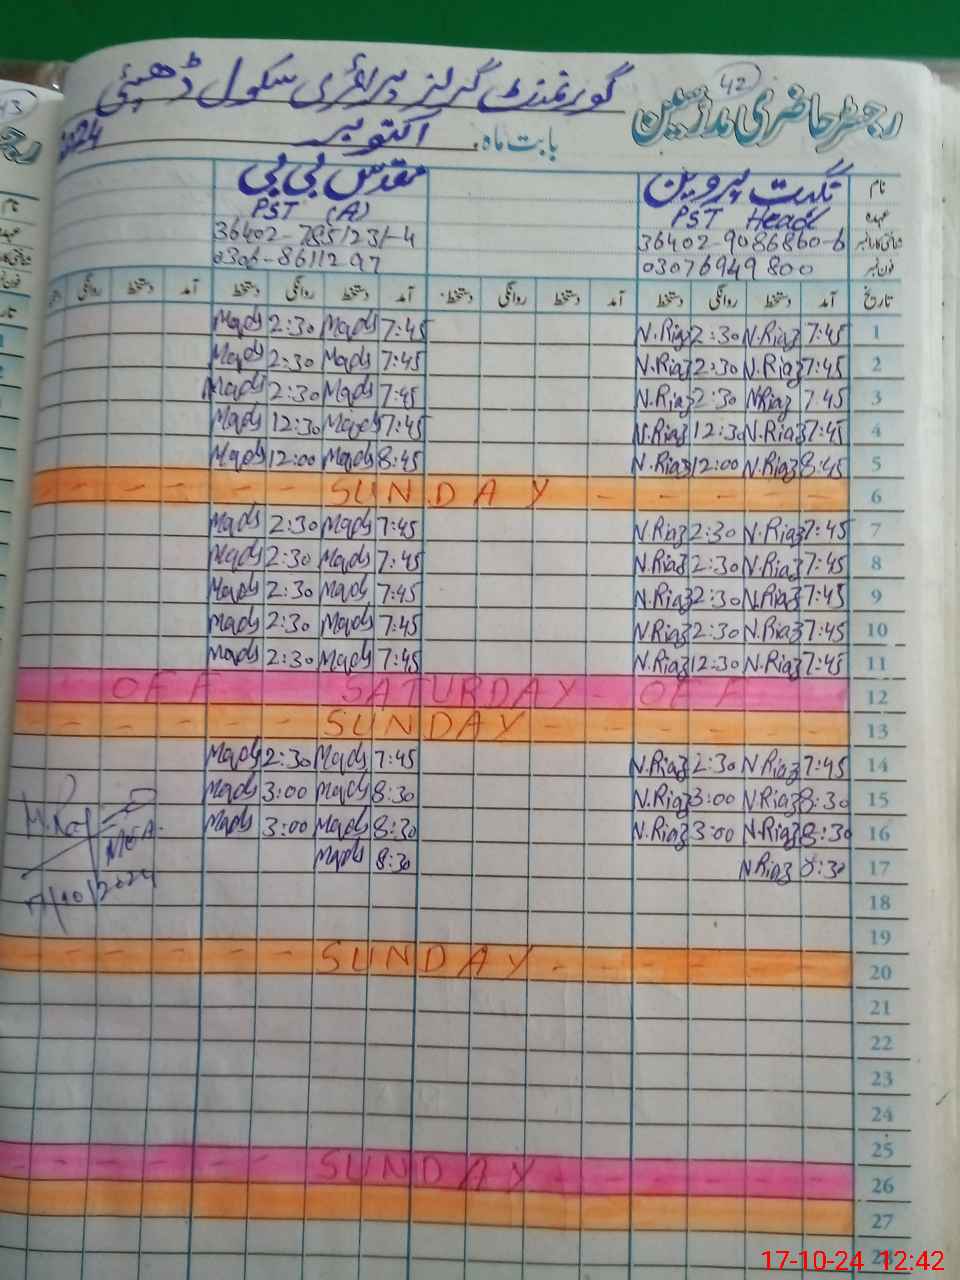 42
رجسٹر حاضری مدرسین
گورنمنٹ گرلز پرائمری سکول ڈھپئی
بابت ماہ. اکتوبر 2024
نام نگہت پروین مقدس بی بی
عہدہ PST Head PST (A)
36402-9086860-6 36402-7851231-4
فون نمبر 03076949800 0306-8611297
تاریخ آمد دستخط روانگی دستخط آمد دستخط روانگی دستخط آمد دستخط روانگی دستخط آمد دستخط روانگی
1 7:45 N.Riaz 2:30 N.Riaz 7:45 Maqds 2:30 Maqds
2 7:45 N.Riaz 2:30 N.Riaz 7:45 Maqds 2:30 Maqds
3 7:45 N.Riaz 2:30 N.Riaz 7:45 Maqds 2:30 Maqds
4 7:45 N.Riaz 12:30 N.Riaz 7:45 Maqds 12:30 Maqds
5 8:45 N.Riaz 12:00 N.Riaz 8:45 Maqds 12:00 Maqds
6 SUNDAY
7 7:45 N.Riaz 2:30 N.Riaz 7:45 Maqds 2:30 Maqds
8 7:45 N.Riaz 2:30 N.Riaz 7:45 Maqds 2:30 Maqds
9 7:45 N.Riaz 2:30 N.Riaz 7:45 Maqds 2:30 Maqds
10 7:45 N.Riaz 2:30 N.Riaz 7:45 Maqds 2:30 Maqds
11 7:45 N.Riaz 12:30 N.Riaz 7:45 Maqds 2:30 Maqds
12 OFF SATURDAY - OFF
13 SUNDAY
14 7:45 N.Riaz 2:30 N.Riaz 7:45 Maqds 2:30 Maqds
15 8:30 N.Riaz 3:00 N.Riaz 8:30 Maqds 3:00 Maqds
16 8:30 N.Riaz 3:00 N.Riaz 8:30 Maqds 3:00 Maqds
17 8:30 N.Riaz 8:30 Maqds
MEA.
17/10/2024
18
19
20 SUNDAY
21
22
23
24
25
26 SUNDAY
27
28
17-10-24 12:42